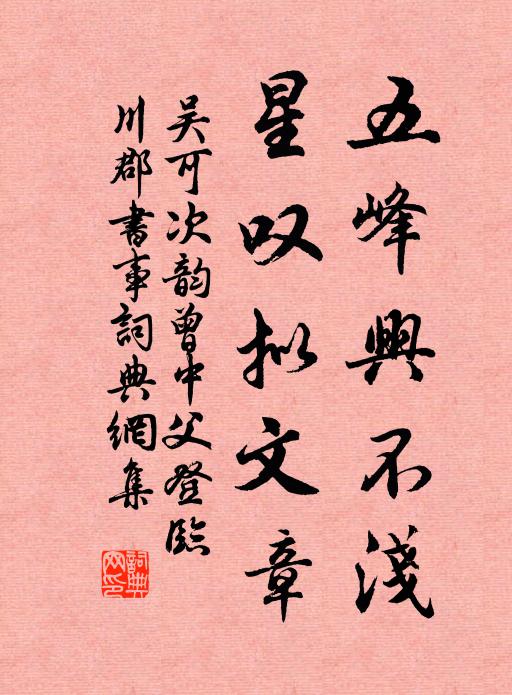 五峰興不淺
星叹拟文章
吴可次韵曾中父登臨
川郡書事詞典網集
詞典网印